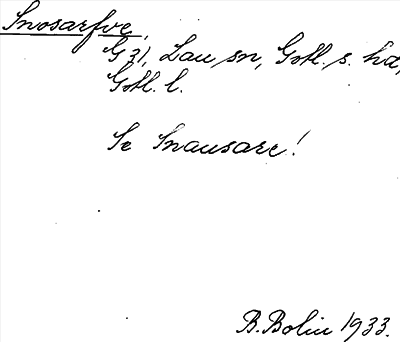 Snosarfve,
G 31, Lau sn, Gotl. s. hd,
Gotl. l.
Se Snausare!
B. Bolin 1933.